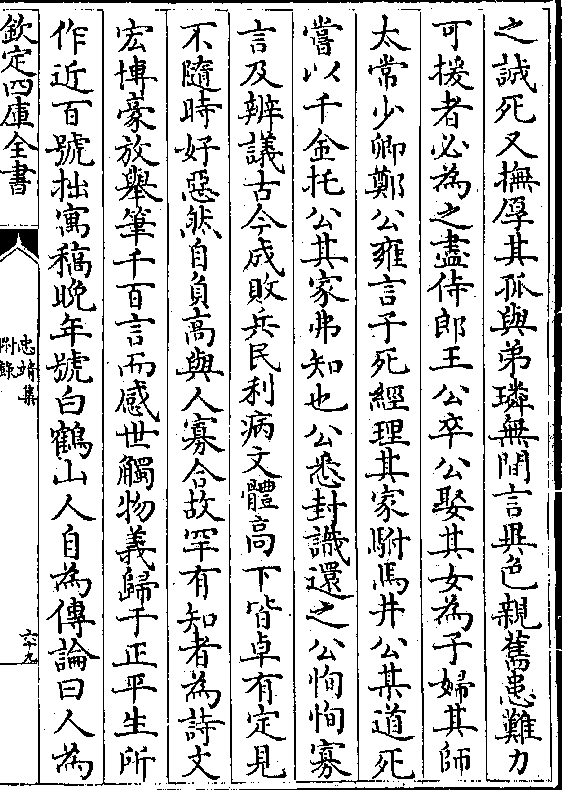 之誠死又撫厚其孤與弟璘無間言異色親舊患難力
可援者必為之盡侍郎王公卒公娶其女為子婦其師
太常少卿鄭公雍言子死經理其家駙馬井公某道死
嘗以千金托公其家弗知也公悉封識還之公恂恂寡
言及辨議古今成敗兵民利病文體高下皆卓有定見
不隨時好惡然自負高與人寡合故罕有知者為詩文
宏博豪放舉筆千百言而感世觸物義歸于正平生所
作近百號拙寓稿晚年號白鶴山人自為傳論曰人為
欽定四庫全書
忠靖集
附錄
六十九